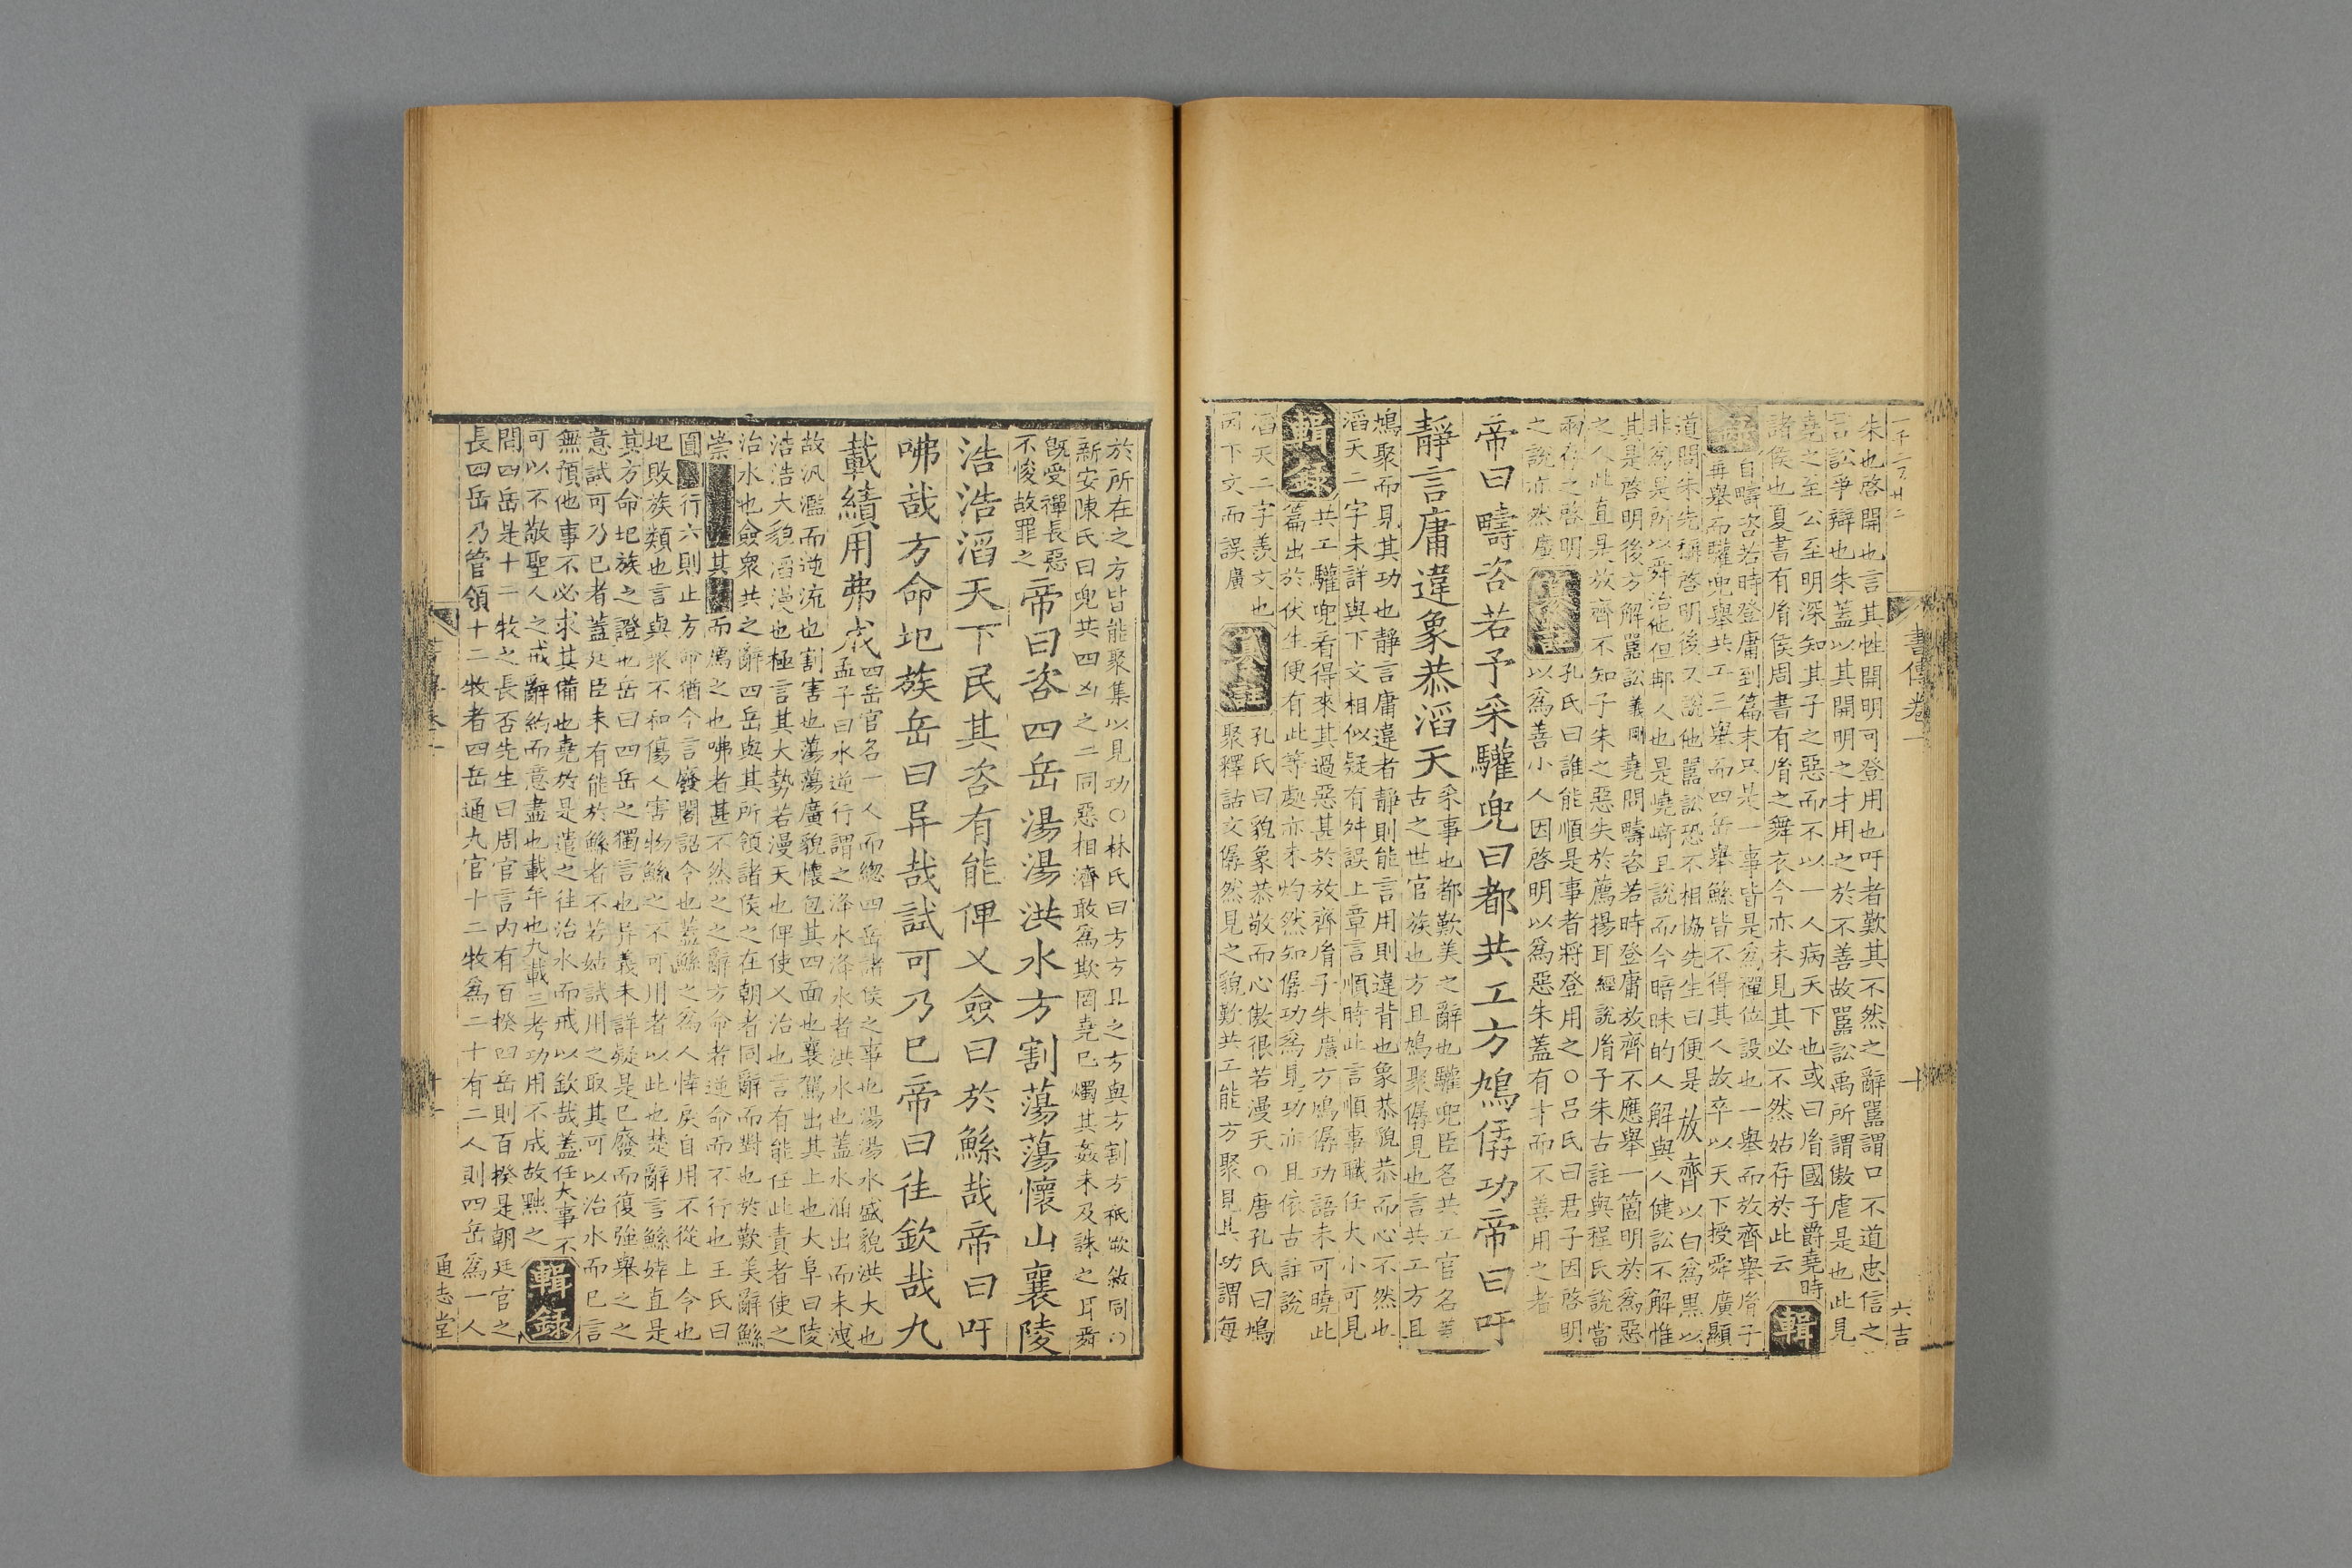 書傳卷一
十
六吉
朱也啓開也言其性開明可登用也吁者歎其不然之辭嚚謂口不道忠信之
言訟爭辯也朱蓋以其開明之才用之於不善故嚚訟禹所謂傲虐是也此見
堯之至公至明深知其子之惡而不以一人病天下也或曰胤國子爵堯時
諸侯也夏書有胤侯周書有胤之舞衣今亦未見其必不然姑存於此云
輯
錄
自疇咨若時登庸到篇末只是一事皆是爲禪位設也一舉而放齊舉胤子
再舉而驩兜舉共工三舉而四岳舉鯀皆不得其人故卒以天下授舜廣顯
道問朱先稱啓明後又說他嚚訟恐不相協先生曰便是放齊以白爲黑以
非爲是所以舜治他但那人也是嶢崎且說而今暗昧的人解與人健訟不解惟
其是啓明後方解嚚訟義剛堯問疇咨若時登庸放齊不應舉一箇明於爲惡
之人此直是放齊不知子朱之惡失於薦揚耳經說胤子朱古註與程氏說當
兩存之啓明
之說亦然廣
纂註
孔氏曰誰能順是事者將登用之○呂氏曰君子因啓明
以爲善小人因啓明以爲惡朱蓋有才而不善用之者
帝曰疇咨若予采驩兜曰都共工方鳩僝功帝曰吁
靜言庸違象恭滔天
采事也都歎美之辭也驩兜臣名共工官名蓋
古之世官族也方且鳩聚僝見也言共工方且
鳩聚而見其功也靜言庸違者靜則能言用則違背也象恭貌恭而心不然也
滔天二字未詳與下文相似疑有舛誤上章言順時此言順事職任大小可見
輯錄
共工驩兜看得來其過惡甚於放齊胤子朱廣方鳩僝功語未可曉此
篇出於伏生便有此等處亦未灼然知僝功爲見功亦且依古註說
滔天二字羨文也
因下文而誤廣
纂註
孔氏曰貌象恭敬而心傲很若漫天○唐孔氏曰鳩
聚釋詁文僝然見之貌歎共工能方聚見其功謂每
於所在之方皆能聚集以見功○林氏曰方方且之方與方割方祗厥敘同○
新安陳氏曰兜共四凶之二同惡相濟敢爲欺罔堯已燭其姦未及誅之耳舜
旣受禪長惡
不悛故罪之
帝曰咨四岳湯湯洪水方割蕩蕩懷山襄陵
浩浩滔天下民其咨有能俾乂僉曰於鯀哉帝曰吁
咈哉方命圮族岳曰异哉試可乃已帝曰往欽哉九
載績用弗成
四岳官名一人而緫四岳諸侯之事也湯湯水盛貌洪大也
孟子曰水逆行謂之洚水洚水者洪水也蓋水涌出而未洩
故汎濫而逆流也割害也蕩蕩廣貌懷包其四面也襄駕出其上也大阜曰陵
浩浩大貌滔漫也極言其大勢若漫天也俾使乂治也言有能任此責者使之
治水也僉衆共之辭四岳與其所領諸侯之在朝者同辭而對也於歎美辭鯀
崇其而薦之也咈者甚不然之之辭方命者逆命而不行也王氏曰
圓行方則止方命猶今言廢閣詔令也蓋鯀之爲人悻戾自用不從上令也
圮敗族類也言與衆不和傷人害物鯀之不可用者以此也楚辭言鯀婞直是
其方命圮族之證也岳曰四岳之獨言也异義未詳疑是已廢而復強舉之之
意試可乃已者蓋廷臣未有能於鯀者不若姑試用之取其可以治水而已言
無預他事不必求其備也堯於是遣之往治水而戒以欽哉蓋任大事不
可以不敬聖人之戒辭約而意盡也載年也九載三考功用不成故黜之
輯錄
問四岳是十二牧之長否先生曰周官言內有百揆四岳則百揆是朝廷官之
長四岳乃管領十二牧者四岳通九官十二牧爲二十有二人則四岳爲一人
通志堂